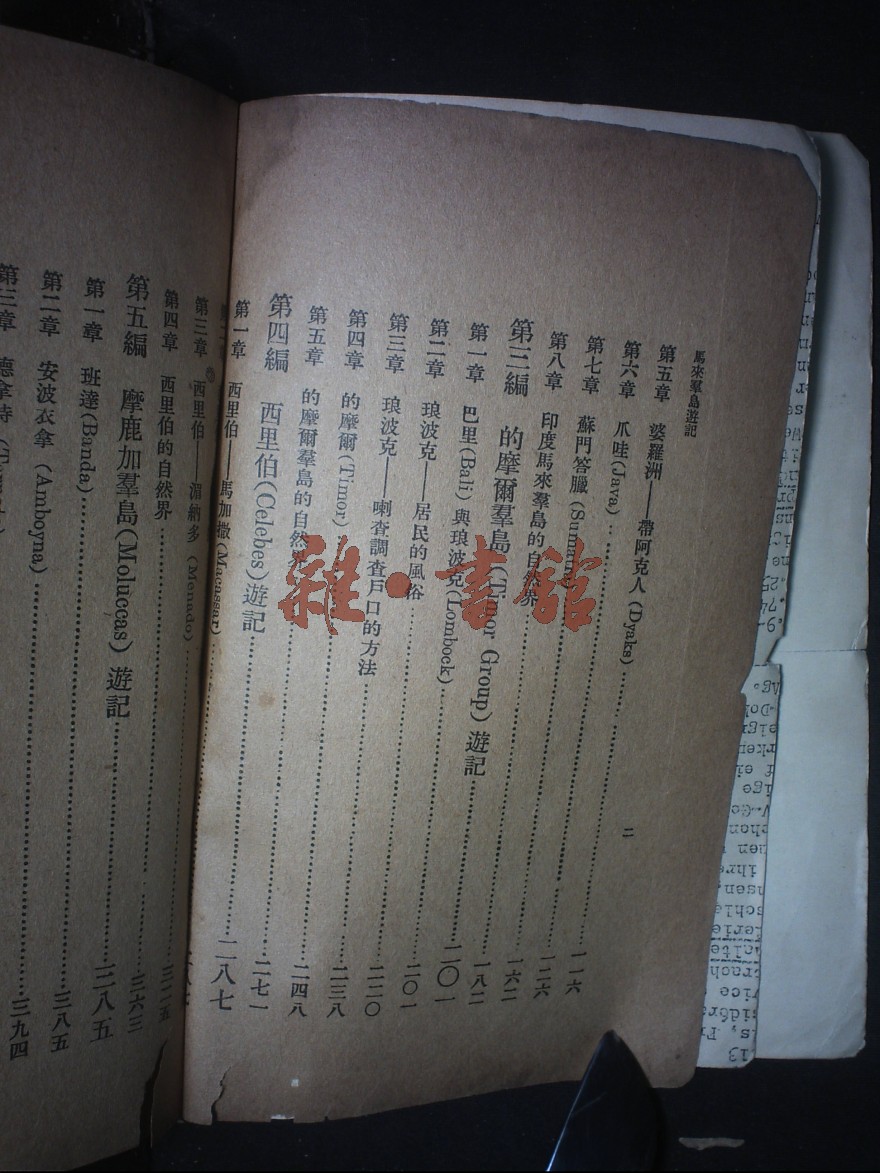 馬來羣島遊記
二
第五章 婆羅洲——帶阿克人(Dyaks)……一一六
第六章 爪哇(Java)……一二六
第七章 蘇門答臘(Sumatra)……一六二
第八章 印度馬來羣島的自然界……一八二
第三編 的摩爾羣島(Timor Group)遊記……二〇一
第一章 巴里(Bali)與琅波克(Lombock)……二〇一
第二章 琅波克——居民的風俗……二二〇
第三章 琅波克——喇查調查戶口的方法……二三八
第四章 的摩爾(Timor)……二四八
第五章 的摩爾羣島的自然界……二七一
第四編 西里伯(Celebes)遊記……二八七
第一章 西里伯——馬加撒(Macassar)……二八七
第三章 西里伯——湄納多(Menado)……三一五
第四章 西里伯的自然界……三六三
第五編 摩鹿加羣島(Moluccas)遊記……三八五
第一章 班達(Banda)……三八五
第二章 安波衣拿(Amboyna)……三九四
第三章 德拿特
雜·書館